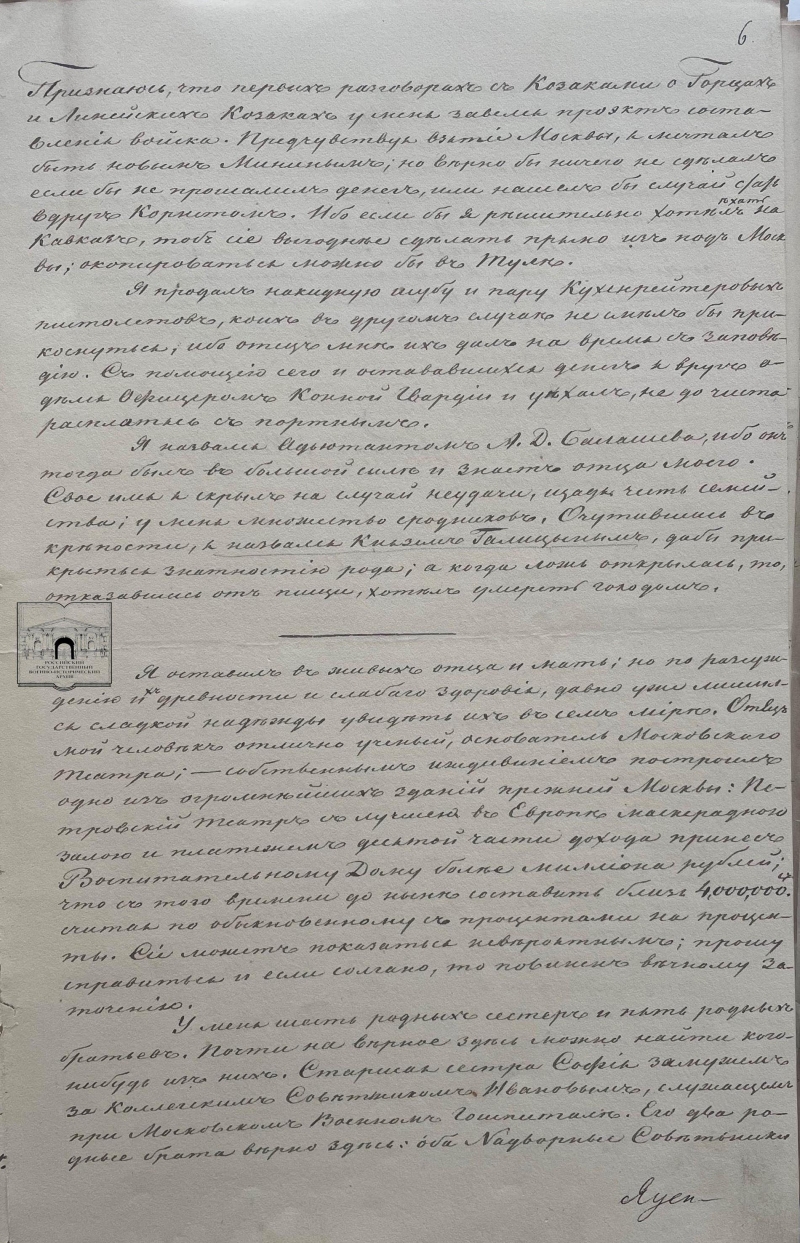 6.
Признаюсь, что первыхъ разговорахъ съ Козаками о Горцахъ
и Линейскихъ Козакахъ у меня завелся проэктъ соста-
вленія войска. Предчувствуя взятіе Москвы, я мечталъ
быть новымъ Мининымъ; но вѣрно бы ничего не сдѣлалъ
если бы не прошалилъ денегъ, или нашелъ бы случай стать
вдругъ Корнетомъ. Ибо если бы я рѣшительно хотѣлъ ѣхать на
Кавказъ, тобъ сіе выгоднѣе сдѣлать прямо изъ подъ Моск
вы; экопироваться можно бы въ Тулѣ.
Я продалъ накидную шубу и пару Кухенрейтеровыхъ
пистолетовъ, коихъ въ другомъ случаѣ не смѣлъ бы при-
коснуться, ибо отецъ мнѣ ихъ далъ на время съ заповѣ-
дію. Съ помощію сего и остававшихся денегъ я вругъ о-
дѣлся Офицеромъ Конной Гвардіи и уѣхалъ, не до чиста
расплатясь съ портнымъ.
Я назвался Адъютантомъ А. Д. Балашева, ибо онъ
тогда былъ въ большой силѣ и знаетъ отца моего.
Свое имя я скрылъ на случай неудачи, щадя честь семей-
ства; у меня множество сродниковъ. Очутившись въ
крѣпости, я назвался Княземъ Галицынымъ, дабы при-
крыться знатностію рода; а когда ложь открылась, то,
отказавшись отъ пищи, хотѣлъ умереть голодомъ.
РОССИЙСКИЙ
ГОСУДАРСТВЕННЫЙ
ВОЕННО-ИСТОРИЧЕСКИЙ
АРХИВ
Я оставилъ въ живыхъ отца и мать; но по разсуж-
денію ихъ древности и слабаго здоровія, давно уже лишил-
ся сладкой надѣжды увидѣть ихъ въ семъ мірѣ. Отецъ
мой человѣкъ отлично ученый, основатель Московскаго
театра; — собственнымъ иждивиніемъ построилъ
одно изъ огромнѣйшихъ зданій прежней Москвы: Пе-
тровскій театръ съ лучшею въ Европѣ маскерадною
залою и платежемъ десятой части дохода принесъ
Воспитательному Дому болѣе милліона рублей;
что съ того времени до нынѣ составитъ близь 4,000,000.
считая по обыкновенному съ процентами на процен-
ты. Сіе можетъ показаться невѣроятнымъ; прошу
справиться и если солгано, то повиненъ вѣчному за-
точенію.
У меня шесть родныхъ сестеръ и пять родныхъ
братьевъ. Почти на вѣрное здѣсь можно найти кого-
нибудь изъ нихъ. Старшая сестра Софія замужемъ
за Коллегскимъ Совѣтникомъ Ивановымъ, служащимъ
при Московскомъ Военномъ Гошпиталѣ. Его два ро-
дные брата вѣрно здѣсь: оба Надворные Совѣтники